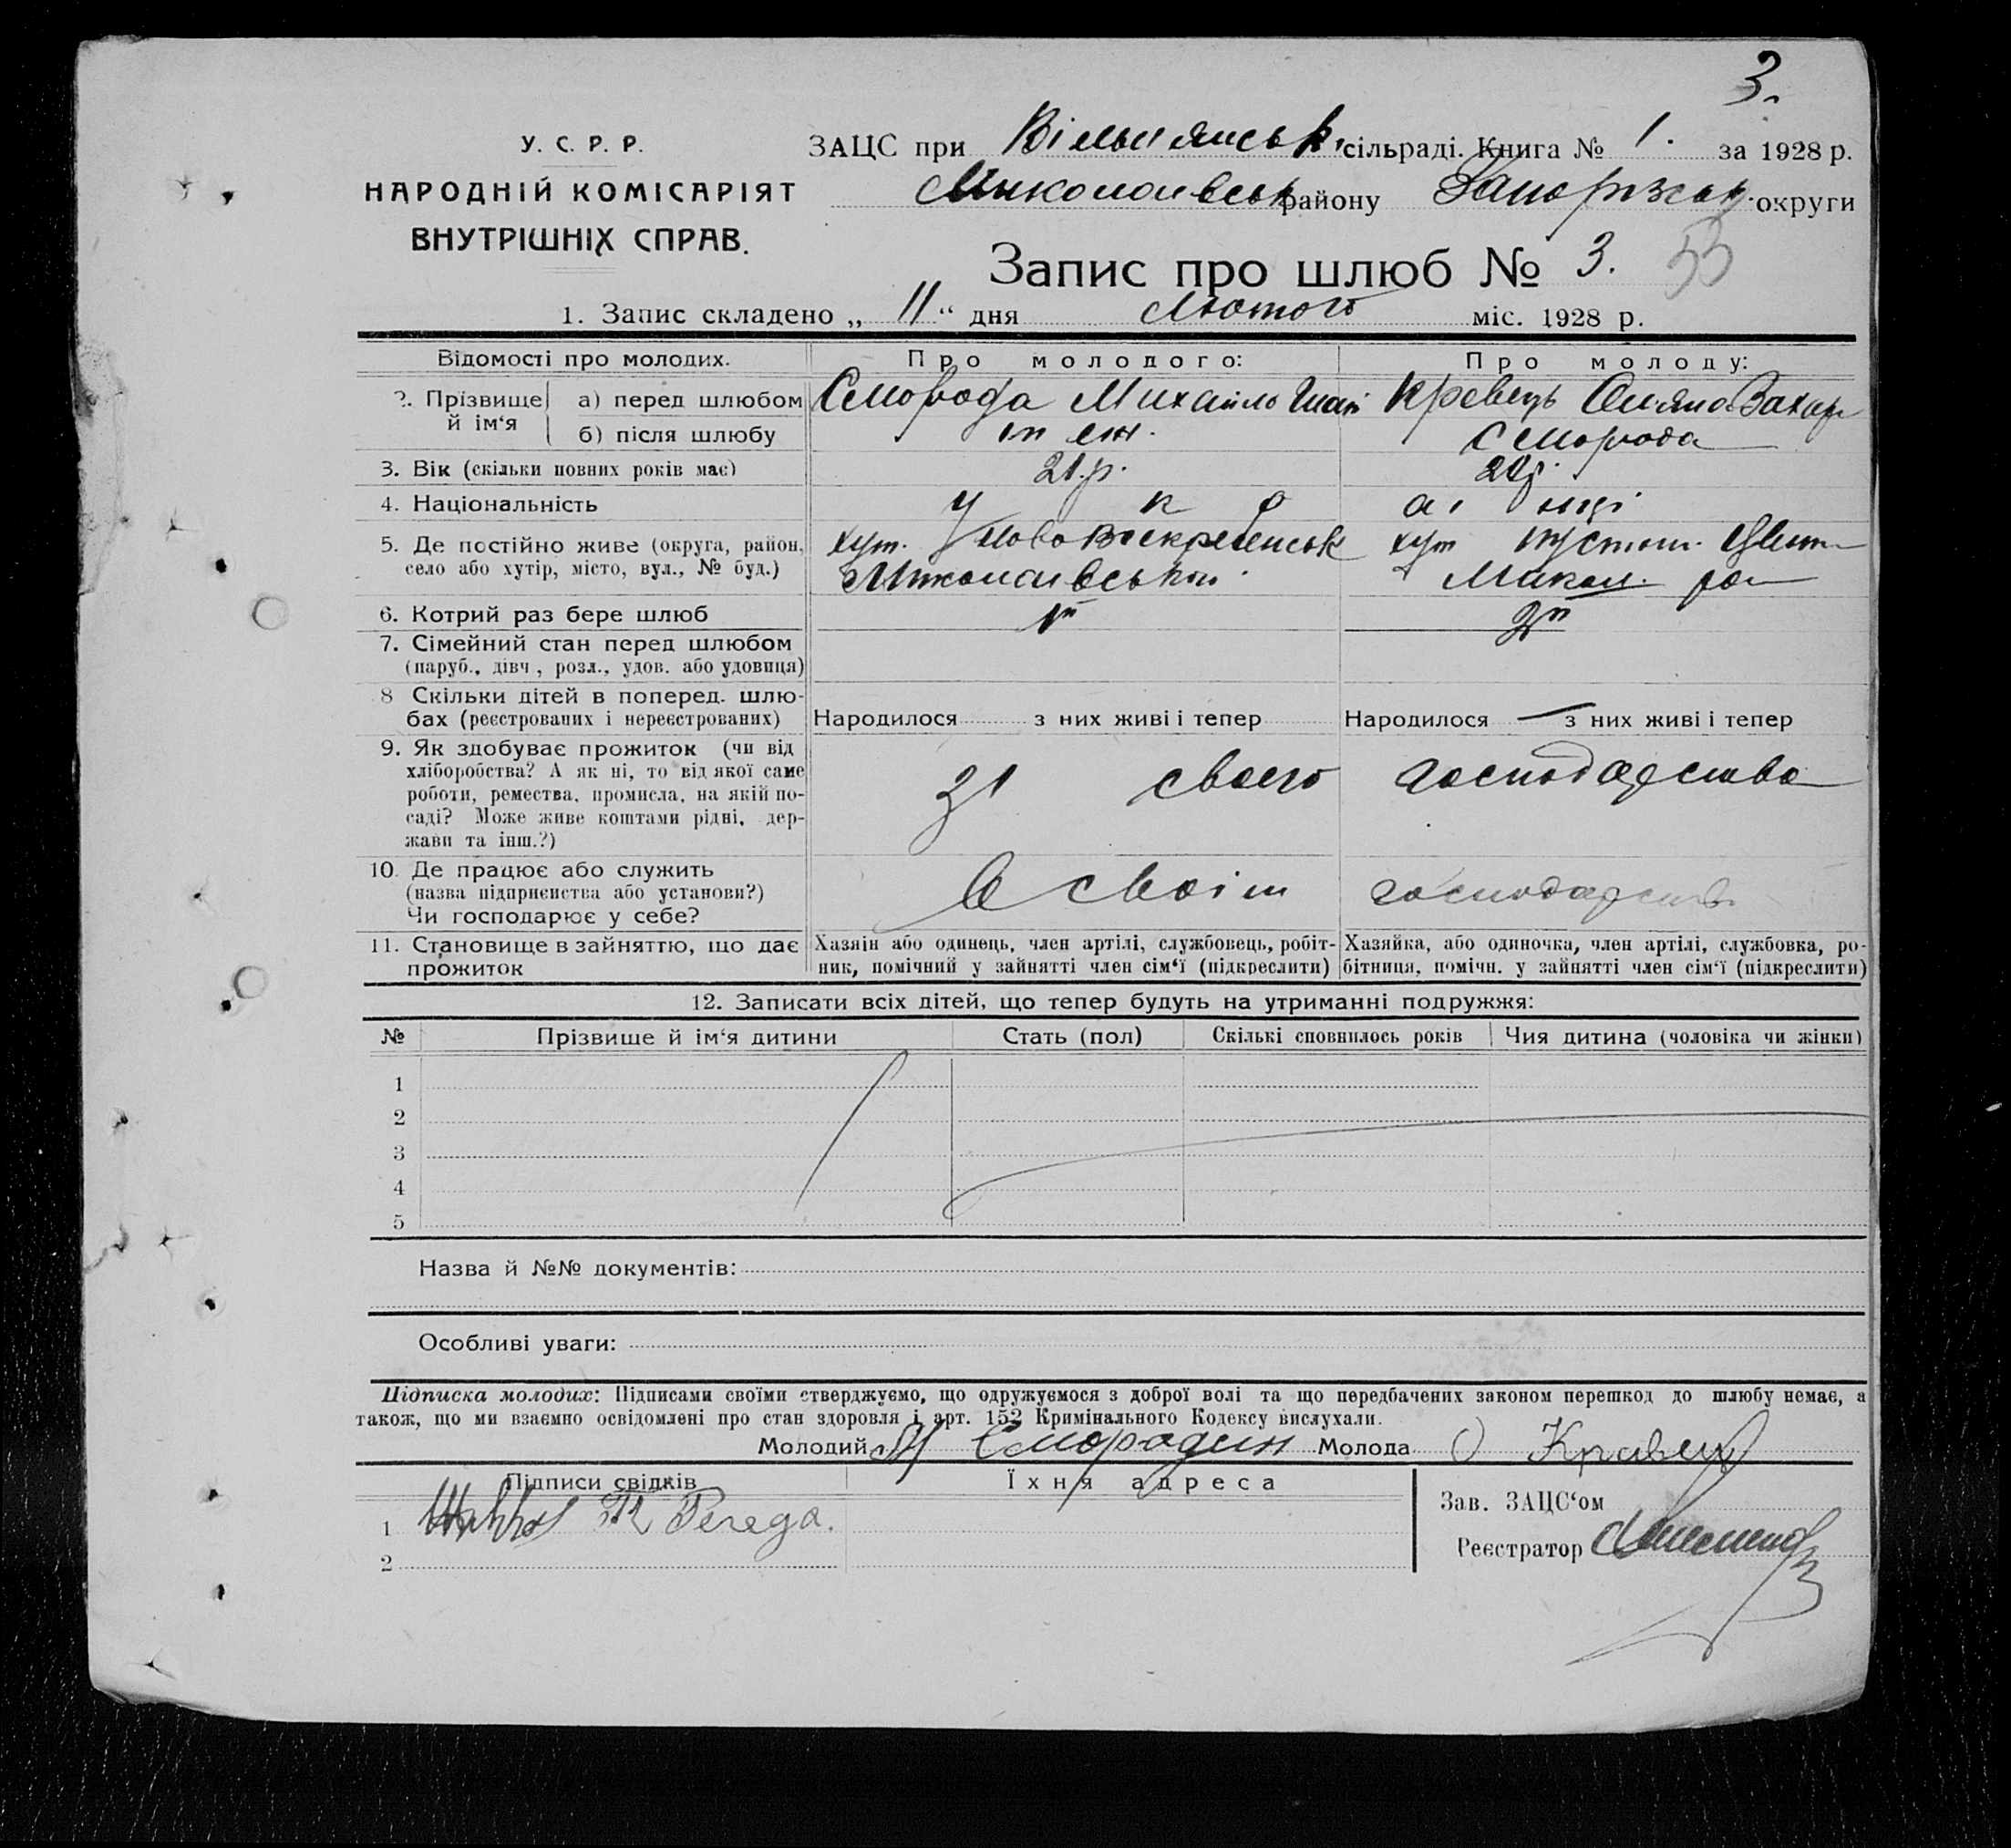 3.
У. С. Р. Р.
НАРОДНІЙ КОМІСАРІЯТ
ВНУТРІШНІХ СПРАВ.
ЗАЦС при Вільнянськ. сільраді. Книга № 1. за 1928 р.
Миколаївськ району Запорізьк. округи
Запис про шлюб № 3. 53
1. Запис складено „ 11 “ дня Лютого міс. 1928 р.
Відомості про молодих. Про молодого: Про молоду:
2. Прізвище й ім‘я а) перед шлюбом Сморода Михайло Кравець Захар
б) після шлюбу Сморода
3. Вік (скільки повних років має) 21 р.
4. Національність у к р а ї нці
5. Де постійно живе (округа, район, село або хутір, місто, вул., № буд.) хут. Ново Воскресенськ хут
Миколаївськ. Микол. ра
6. Котрий раз бере шлюб 1й 2й
7. Сімейний стан перед шлюбом
(паруб., дівч., розл., удов. або удовиця)
8 Скільки дітей в поперед. шлюбах (реєстрованих і нереєстрованих) Народилося з них живі і тепер Народилося — з них живі і тепер
9. Як здобуває прожиток (чи від
хліборобства? А як ні, то від якої саме
роботи, ремества, промисла, на якій по-
саді? Може живе коштами рідні, дер-
жави та інш.?)
зі свого господарства
10. Де працює або служить
(назва підприємства або установи?)
Чи господарює у себе?
В своїм господарстві
11. Становище в зайняттю, що дає
прожиток
Хазяін або одинець, член артілі, службовець, робіт-
ник, помічний у зайнятті член сім‘ї (підкреслити)
Хазяйка, або одиночка, член артілі, службовка, ро-
бітниця, помічн. у зайнятті член сім‘ї (підкреслити)
12. Записати всіх дітей, що тепер будуть на утриманні подружжя:
№ Прізвище й ім‘я дитини Стать (пол) Скількі сповнилось років Чия дитина (чоловіка чи жінки)
1
2
3
4
5
Назва й №№ документів:
Особливі уваги:
Підписка молодих: Підписами своїми стверджуємо, що одружуємося з доброї волі та що передбачених законом перешкод до шлюбу немає, а
також, що ми взаємно освідомлені про стан здоровля і арт. 152 Кримінального Кодексу вислухали.
Молодий М Смородин Молода О Кравец
Підписи свідків Їхня адреса
1
2
Зав. ЗАЦС‘ом
Реєстратор